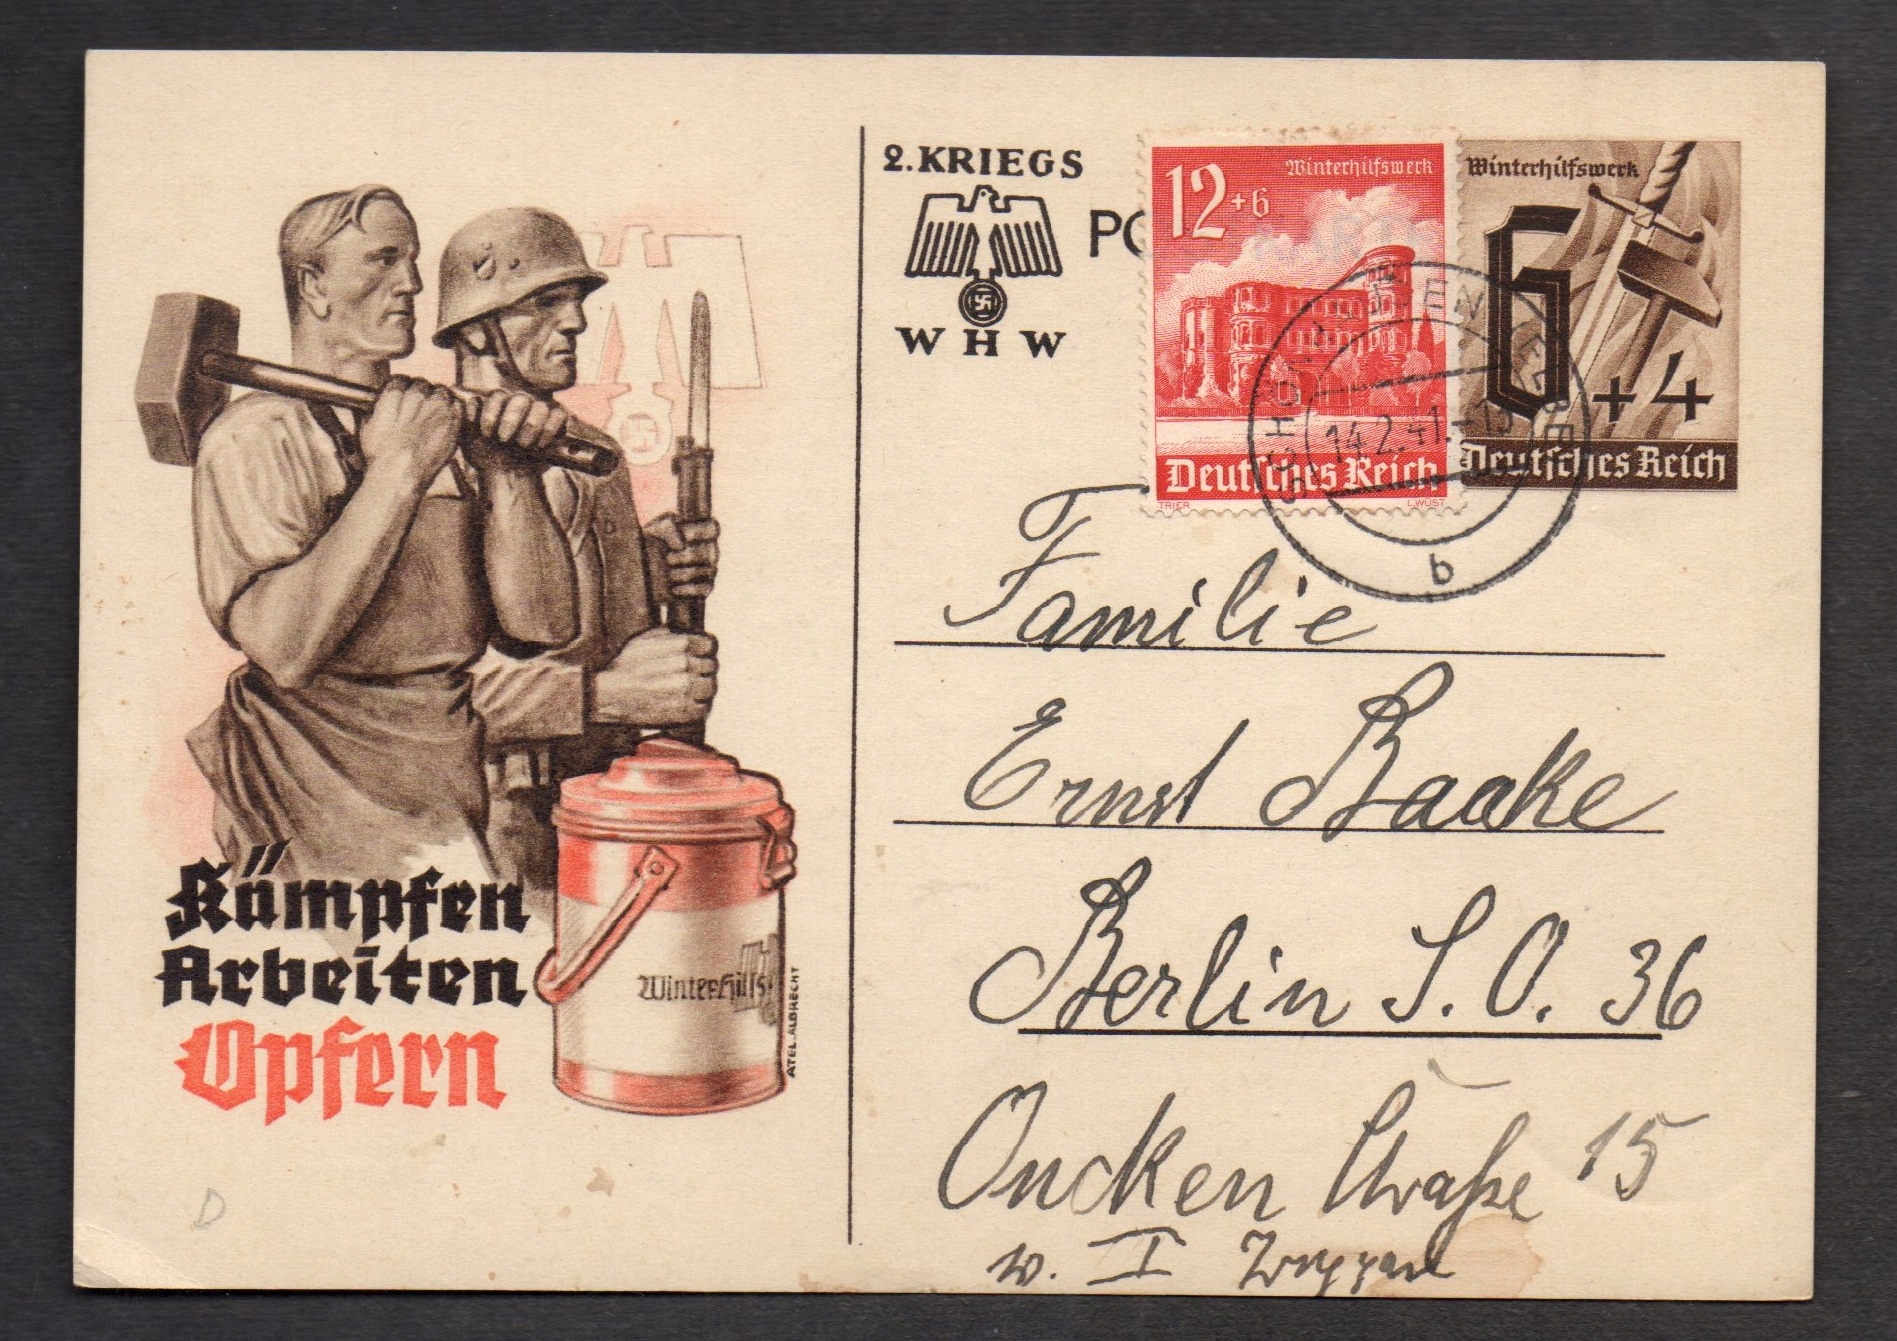 Kämpfen
Arbeiten
Opfern
Winterhilfs
ATEL. ALBRECHT
D
2. KRIEGS
WHW
PO
12+6
Winterhilfswerk
Deutsches Reich
TRIER
L. WÜST
Winterhilfswerk
6+4
Deutsches Reich
14.2.41.-19
b
Familie
Ernst Baake
Berlin S.O. 36
Oncken Straße 15
w. I